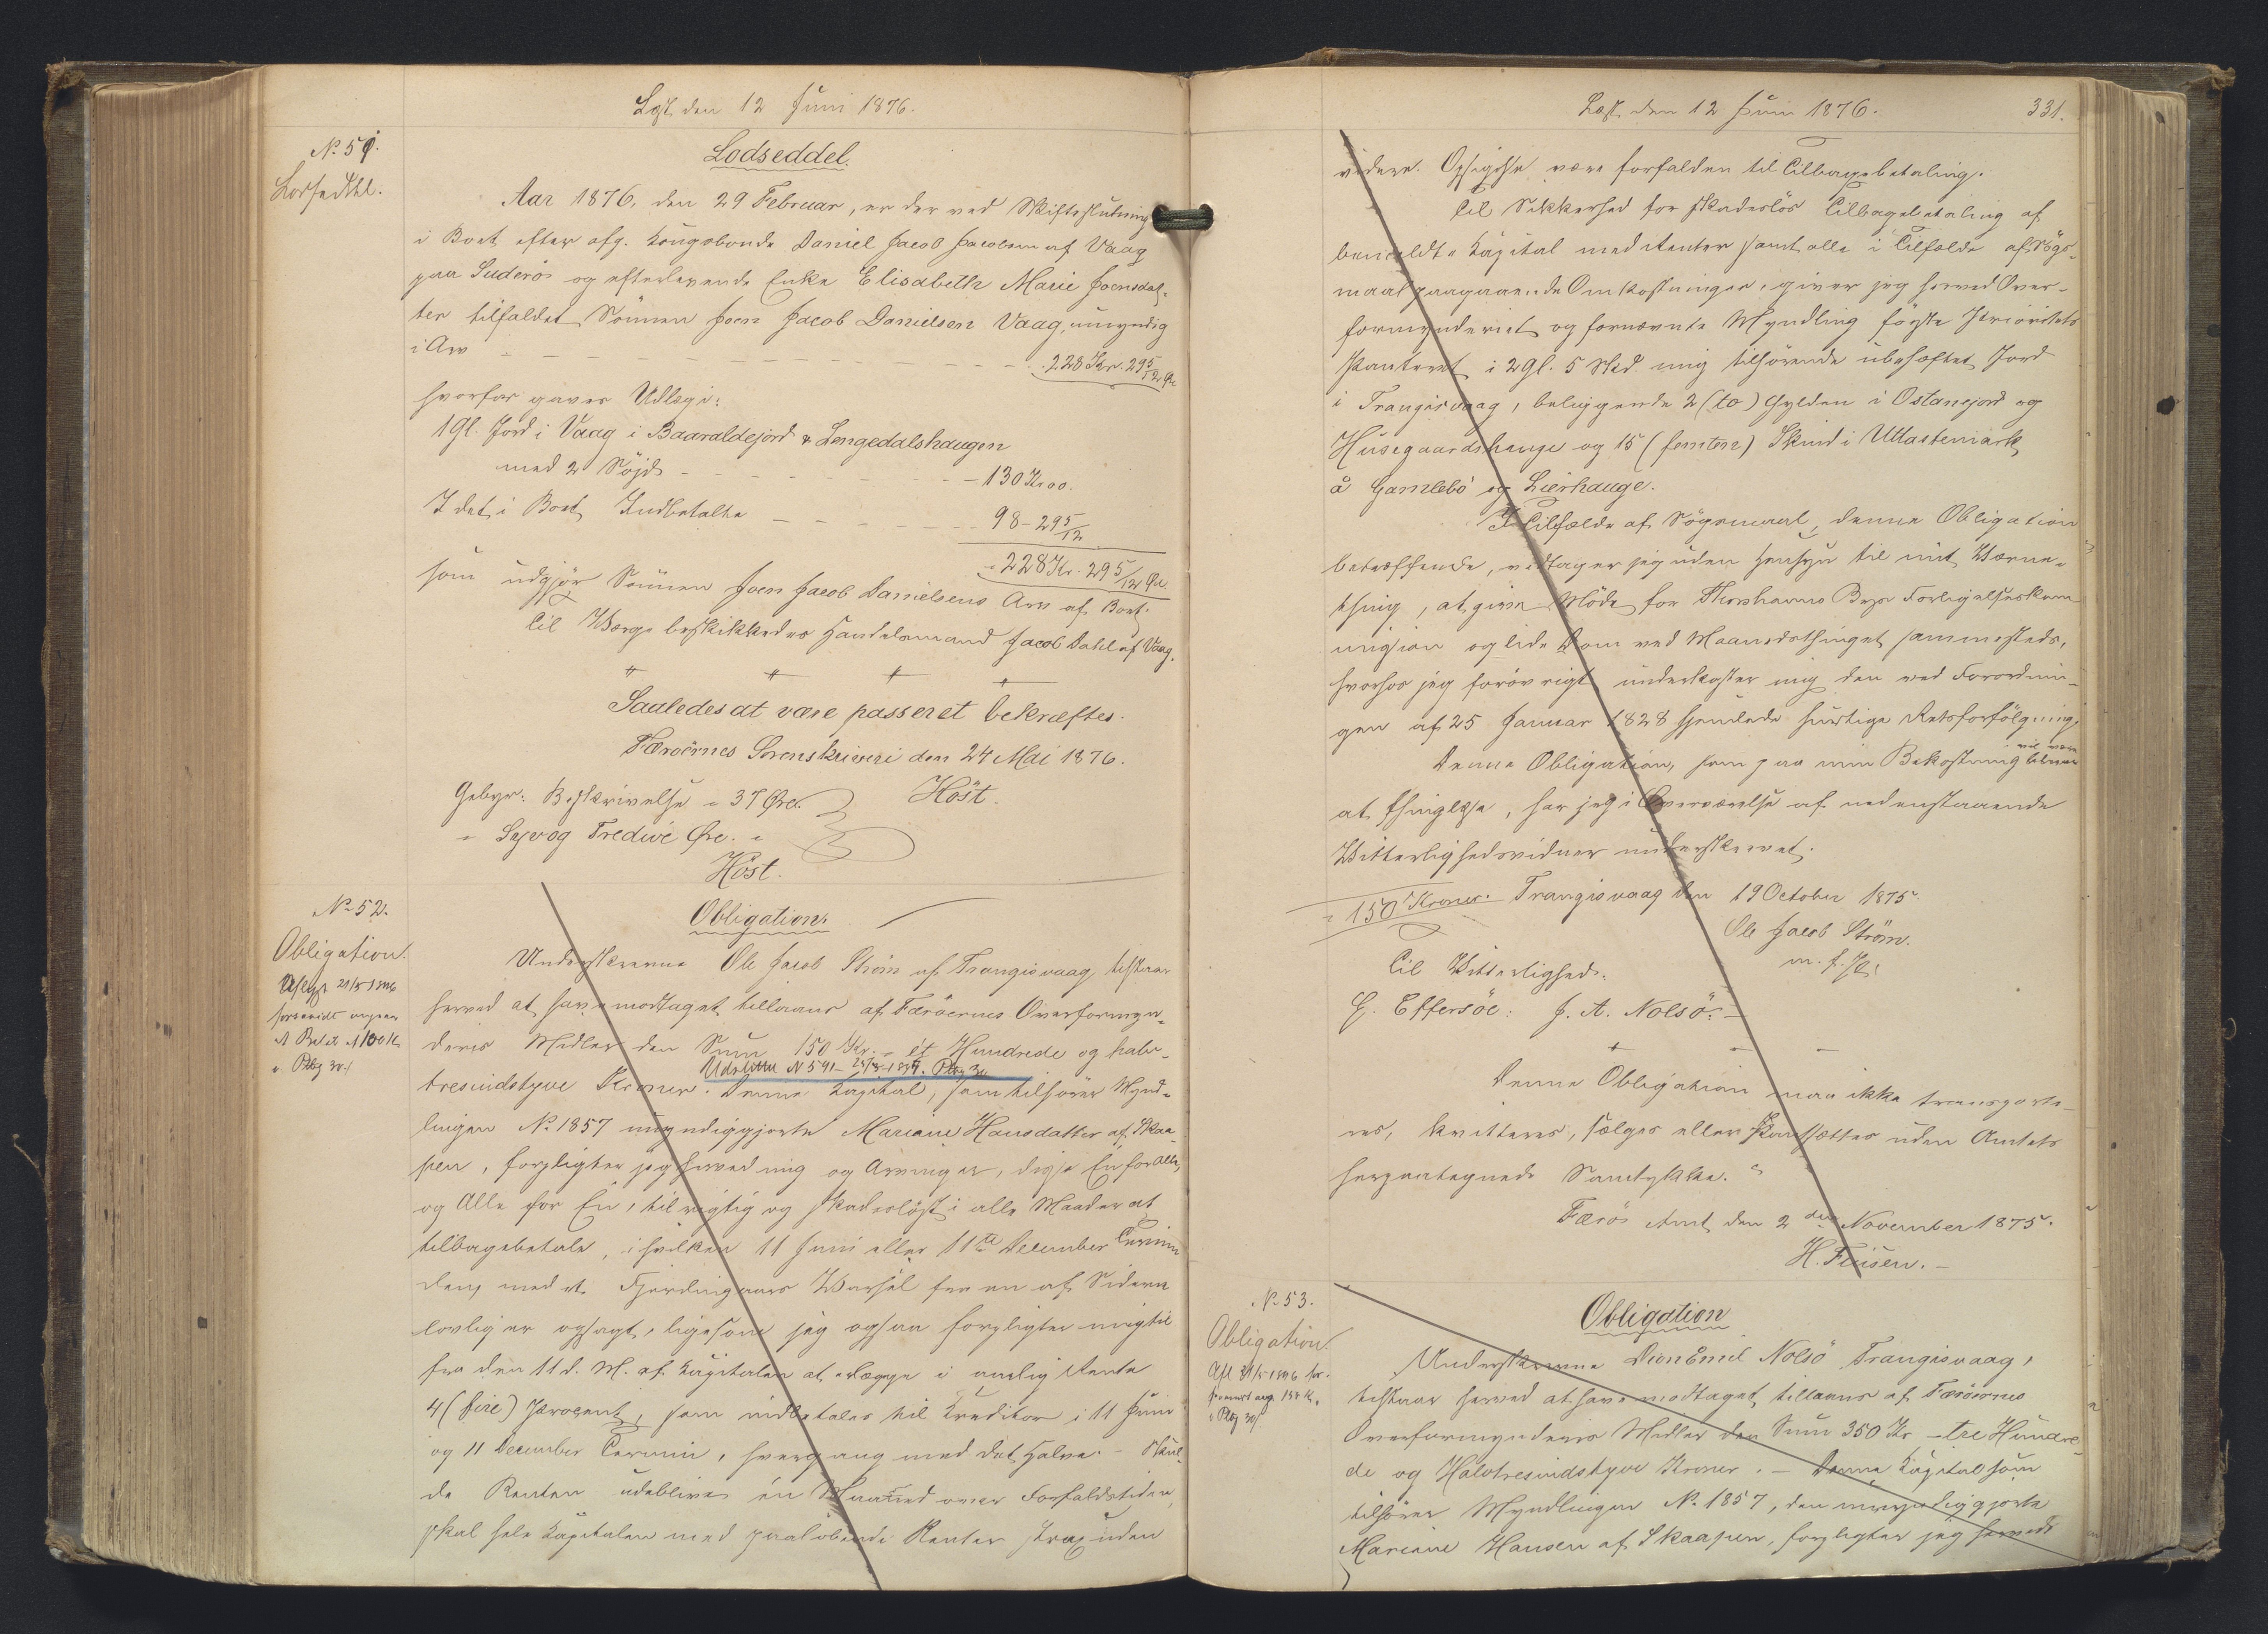 Læst den 12 Juni 1876.
No 51.
Lodseddel.
Lodseddel.
Aar 1876, den 29 Februar, er der ved Skifteslutning
i Boet efter afg. Kongsbonde Daniel Jacob Jacobsen af Vaag
paa Suderö og efterlevende Enke Elisabeth Marie Joensdat-
ter tilfaldet Sönnen Joen Jacob Danielsen Vaag, umyndig
i Arv - - - 228 Kr. 29 5/12 Øre
hvorfor gaves Udlæg i:
1 Gl. Jord i Vaag i Baaraldejord & Lengedalshaugen
med 2 Söjde - - - 130 Kr 00.
I det i Boet Indbetalte - - - 98 - 29 5/12
228 Kr. 29 5/12 Øre.
som udgjör Sönnen Joen Jacob Danielsens Arv af Boet.
Til Værge beskikkedes Handelsmand Jacob Dahl af Vaag.
Saaledes at være passeret bekræftes.
Færöernes Sorenskriveri den 24 Mai 1876.
Höst.
Gebyr: Beskrivelse = 37 Øre.
= Syv og Tredive Øre. =
Höst.
No 52.
Obligation.
Obligation.
Aflyst 21/5 1896
Underskrevne Ole Jacob Ström af Trangisvaag, tilstaar
herved at have modtaget tillaans af Færöernes Overformyn-
deris Midler den Sum 150 Kr. = et Hundrede og halv-
tresindstyve Kroner. Denne Kapital, som tilhörer Mynd-
lingen No 1857 umyndiggjorte Mariane Hansdatter af Skaa-
pen, forpligter jeg herved mig og Arvinger, disse Én for Alle,
og Alle for Én, til rigtig og skadeslöst i alle Maader at
tilbagebetale, i hvilken 11 Juni eller 11te December Termin
den, med et Fjerdingaars Varsel fra en af Siderne
lovlig er opsagt, ligesom jeg ogsaa forpligter mig til
fra den 11 d. M. af Kapitalen at erlægge i aarlig Rente
4 (fire) Procent, som indbetales til Kreditor i 11 Juni
og 11 December Termin, hvergang med det Halve. - Skul-
de Renten udeblive én Maaned over Forfaldstiden,
skal hele Kapitalen med paalöbende Renter strax uden
Læst den 12 Juni 1876.
331.
videre Opsigelse være forfalden til Tilbagebetaling.
Til Sikkerhed for skadeslös Tilbagebetaling af
bemeldte Kapital med Renter samt alle i Tilfælde af Sögs-
maal paagaaende Omkostninger, giver jeg herved Over-
formynderiet og fornævnte Myndling förste Prioritets
Panteret i 2 Gl. 5 Skd. mig tilhörende ubehæftet Jord
i Trangisvaag, beliggende 2 (to) Gylden i Ostanejord og
Husegaardshauge og 15 (femten) Skind i Uttastemark
å Gamlebö og Lierhauge.
I Tilfælde af Sögsmaal, denne Obligation
betræffende, vedtager jeg uden Hensyn til mit Værne-
thing, at give Möde for Thorshavns Byes Forligelseskom-
mission og lide Dom ved Maanedsthinget sammesteds,
hvorhos jeg forövrigt underkaster mig den ved Forordnin-
gen af 25 Januar 1828 hjemlede hurtige Retsforfölgning.
Denne Obligation, som paa min Bekostning vil være
at thinglæse, har jeg i Overværelse af nedenstaaende
Vitterlighedsvidner underskrevet.
= 150 Kroner. Trangisvaag den 19 October 1875.
Ole Jacob Ström.
m. f. P.
Til Vitterlighed:
G. Effersöe: J. A. Nolsö. -
Denne Obligation maa ikke transporte-
res, kvitteres, sælges eller pantsættes uden Amtets
herpaategnede Samtykke.
Færö Amt den 2den November 1875.
H. Finsen. -
No 53.
Obligation.
Obligation
Underskrevne Emil Nolsö Trangisvaag,
tilstaar herved at have modtaget tillaans af Færöernes
Overformynderis Midler den Sum 350 Kr - tre Hundre-
de og Halvtresindstyve Kroner. - Denne Kapital som
tilhörer Myndlingen No 1857, den umyndiggjorte
Mariane Hansen af Skaapen, forpligter jeg herved